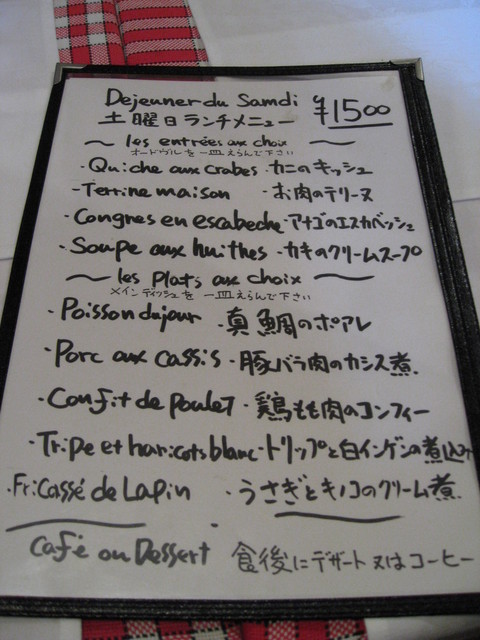 Dejeuner du Samdi ¥1500
土曜日ランチメニュー
les entrées aux choix
オードヴルを一皿えらんで下さい
・Quiche aux crabes・カニのキッシュ
・Terrine maison・お肉のテリーヌ
・Congres en escabeche・アナゴのエスカベッシュ
・Soupe aux huithes・カキのクリームスープ
les Plats aux choix
メインディッシュを一皿えらんで下さい
・Poisson dujour・真鯛のポアレ
・Porc aux cassis・豚バラ肉のカシス煮
・Confit de poulet・鶏もも肉のコンフィー
・Tripe et haricots blanc・トリップと白インゲンの煮込み
・Fricassé de Lapin・うさぎとキノコのクリーム煮
Café ou Dessert 食後にデザート又はコーヒー